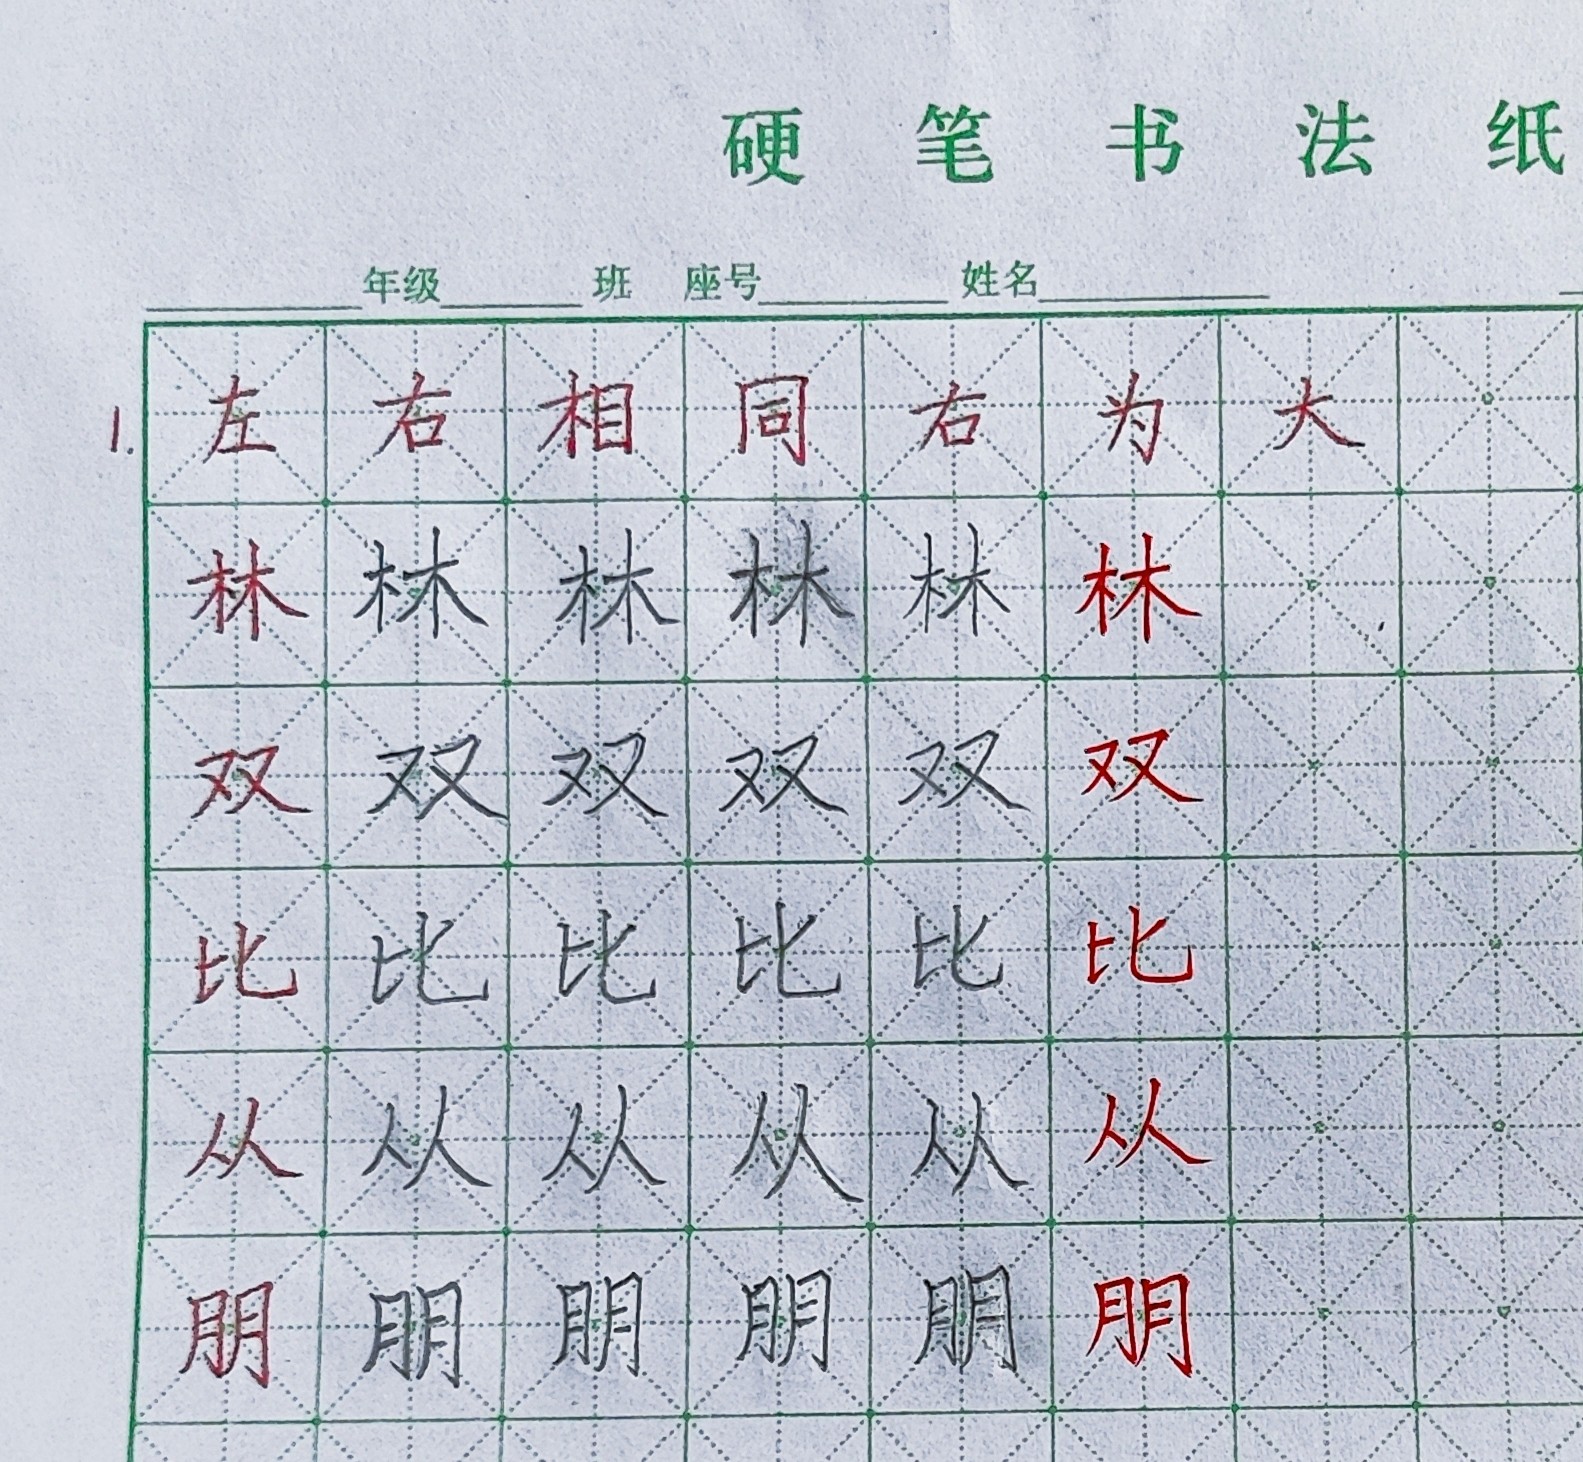 硬笔书法纸
年级 班 座号 姓名
1. 左右相同右为大
林林林林林林
双双双双双双
比比比比比比
从从从从从从
朋朋朋朋朋朋